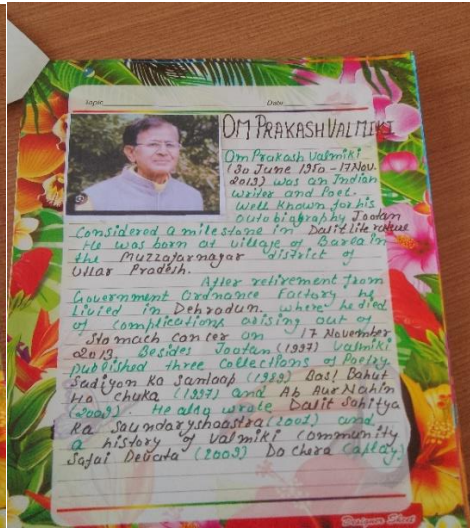 Topic Date
OM PRAKASH VALMIKI
Om Prakash Valmiki
(30 June 1950 - 17 Nov.
2013) was an Indian
writer and Poet.
Well Known for his
autobiography Jootan
Considered a milestone in Dalit literature
He was born at village of Barla in
the Muzzafarnagar district of
Uttar Pradesh.
After retirement from
Government Ordnance Factory he
livied in Dehradun. where he died
of complications arising out of
stomach cancer on 17 November
2013 Besides Jootan (1997) Valmiki
published three collections of Poetry
Sadiyon Ka Santaap (1989) Bas! Bahut
Ho Chuka (1997) and Ab Aur Nahin
(2009) He also wrote Dalit Sahitya
Ka Saundaryshaastra (2001) and
a history of Valmiki community
Safai Devata (2009) Do Chera (a Play)
Designer Sheet